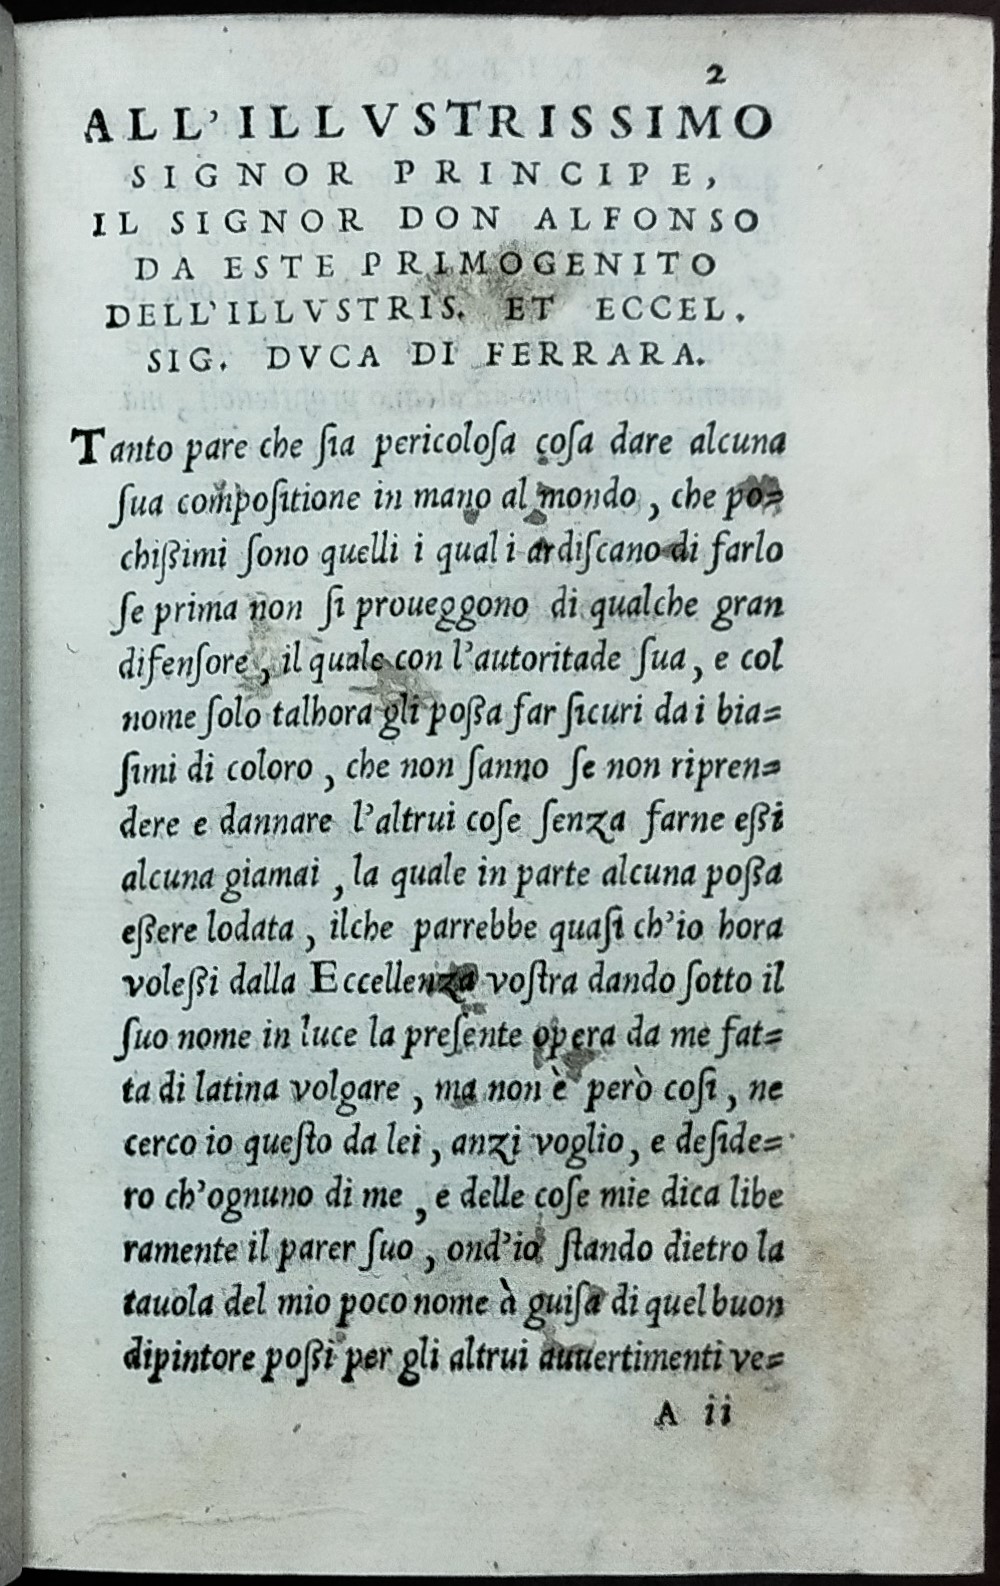 2
ALL'ILLVSTRISSIMO
SIGNOR PRINCIPE,
IL SIGNOR DON ALFONSO
DA ESTE PRIMOGENITO
DELL'ILLVSTRIS. ET ECCEL.
SIG. DVCA DI FERRARA.
Tanto pare che ſia pericoloſa coſa dare alcuna
ſua compoſitione in mano al mondo, che po=
chißimi ſono quelli i quali ardiſcano di farlo
ſe prima non ſi proueggono di qualche gran
difenſore, il quale con l'autoritade ſua, e col
nome ſolo talhora gli poßa far ſicuri da i bia=
ſimi di coloro, che non ſanno ſe non ripren=
dere e dannare l'altrui coſe ſenza farne eßi
alcuna giamai, la quale in parte alcuna poßa
eßere lodata, ilche parrebbe quaſi ch'io hora
voleßi dalla Eccellenza voſtra dando ſotto il
ſuo nome in luce la preſente opera da me fat=
ta di latina volgare, ma non è però coſi, ne
cerco io queſto da lei, anzi voglio, e deſide=
ro ch'ognuno di me, e delle coſe mie dica libe
ramente il parer ſuo, ond'io ſtando dietro la
tauola del mio poco nome à guiſa di quel buon
dipintore poßi per gli altrui auuertimenti ve=
A ii